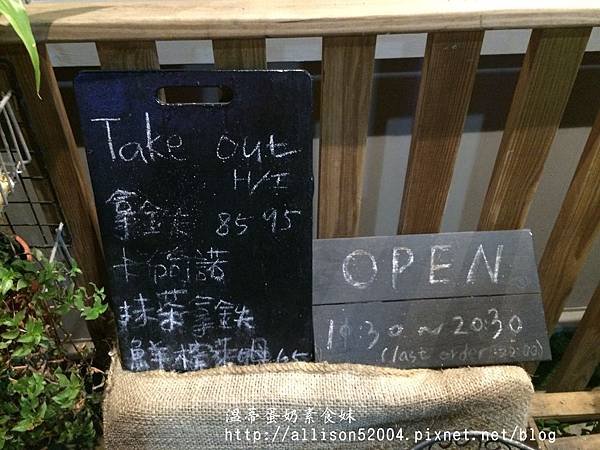 Take out
H/I
拿鉄 85 95
卡布諾
抹茶拿鉄
鮮榨 65
OPEN
:30~20:30
(last order:20:00)
溫蒂蛋奶素食妹
http://allison52004.pixnet.net/blog